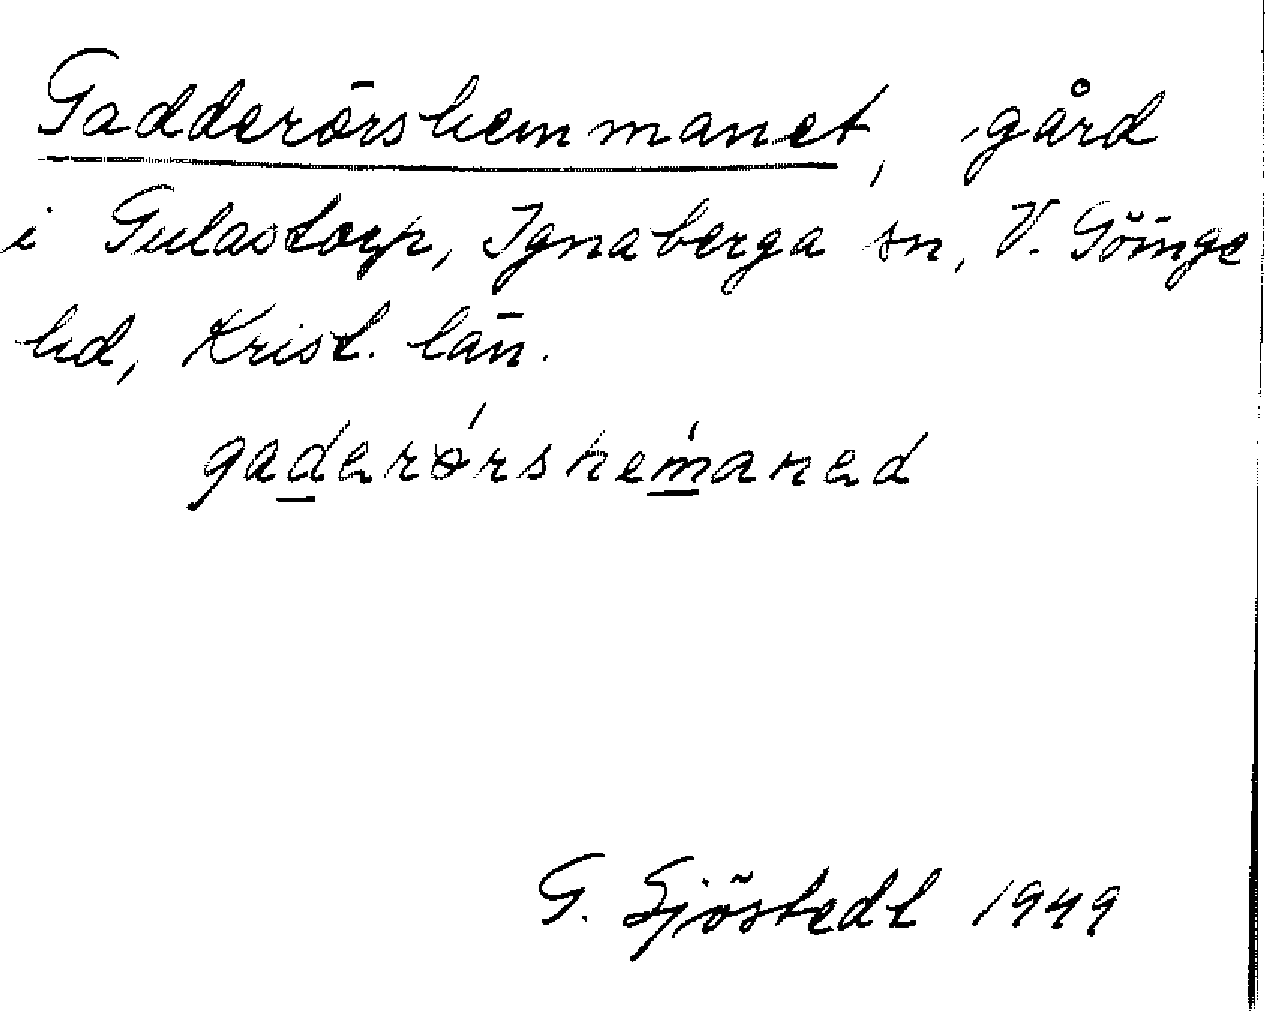 Gadderörshemmanet, gård
i Gulastorp, Ignaberga sn, V. Göinge
hd, Krist. län.
gaderørshemanad
G. Sjöstedt 1949